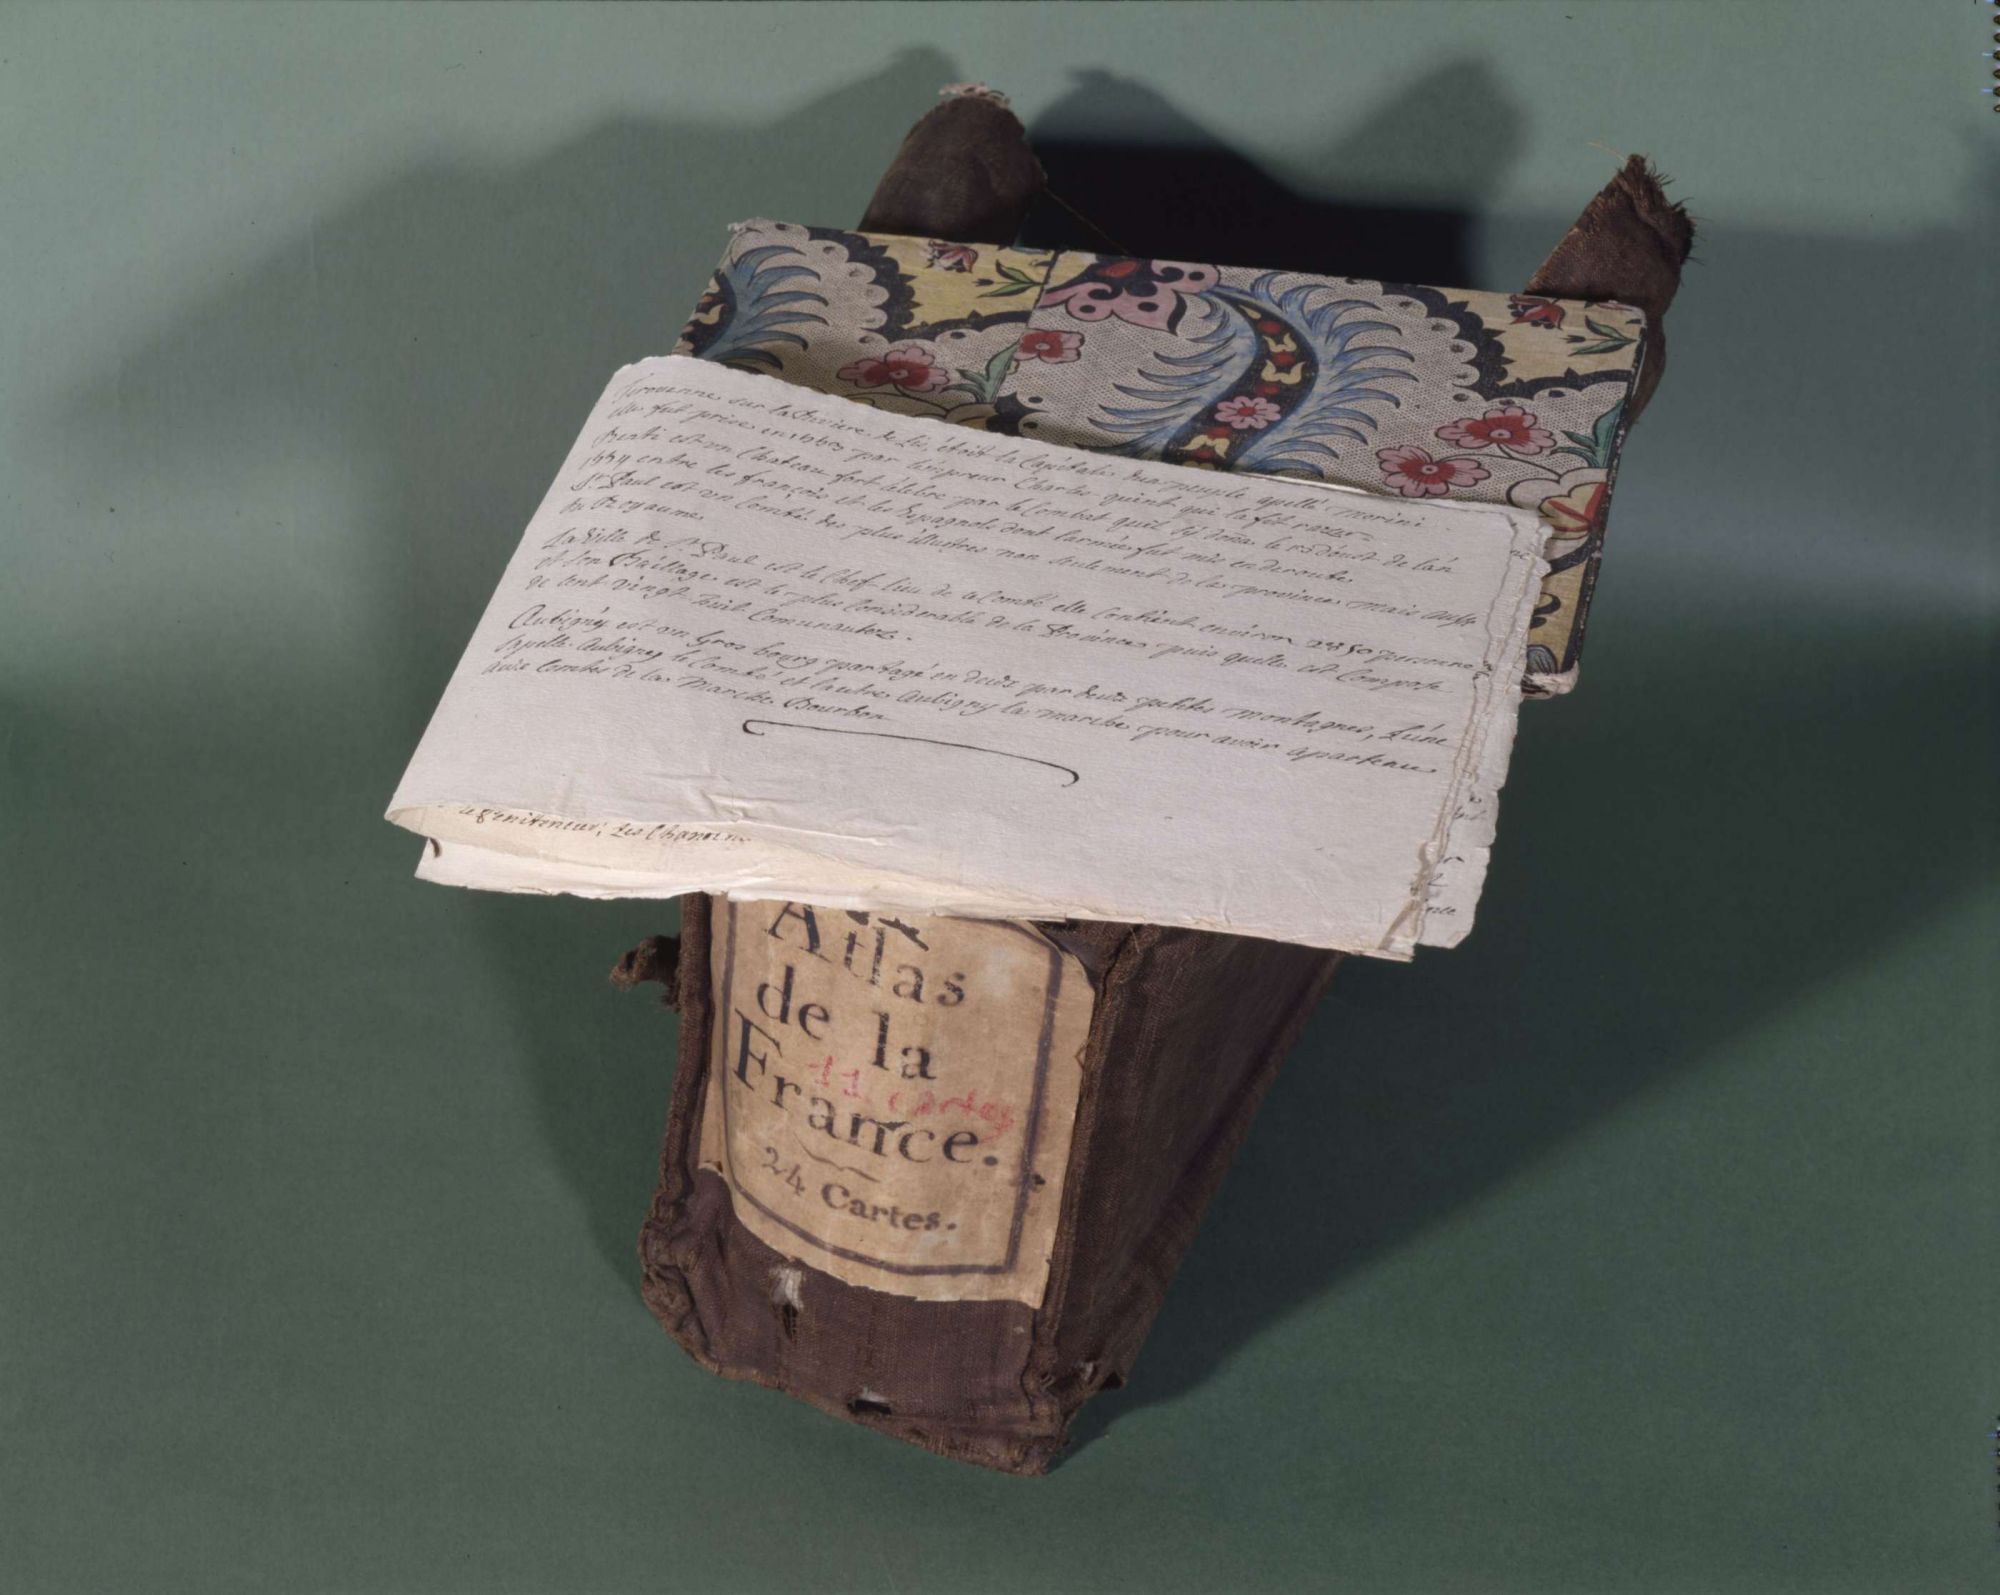 Terouenne sur la Riviere de Lis, étoit la Capitalle dun peuple apellé morini
elle fut prise en 1553 par lempereur Charles quint qui la fit razer
Renti est un Chateau fort célebre par le Combat quil sy dona le 13 doust de lan
1554 entre les françois et les Espagnols dont larmée fut mis en deroute
St. Paul est un Comté des plus illustres non seulement de la province mais aussy
du Royaume
La Ville de St. Paul est le Chef lieu de ce Comté elle Contient environ personnes
et son Baillage est le plus Considerable de la Province puis quelle est Compose
de Cent vingt huit Comunautez.
Aubigny est un Gros bourg partagé en deux par deux petites montagnes, Lune
sapelle Aubigny le Comté et lautre Aubigny la marche pour avoir aparteau
aux Comtes de la Marche Bourbon
Les Chanoin
Atlas
de la
France.
11 cartes
24 Cartes.